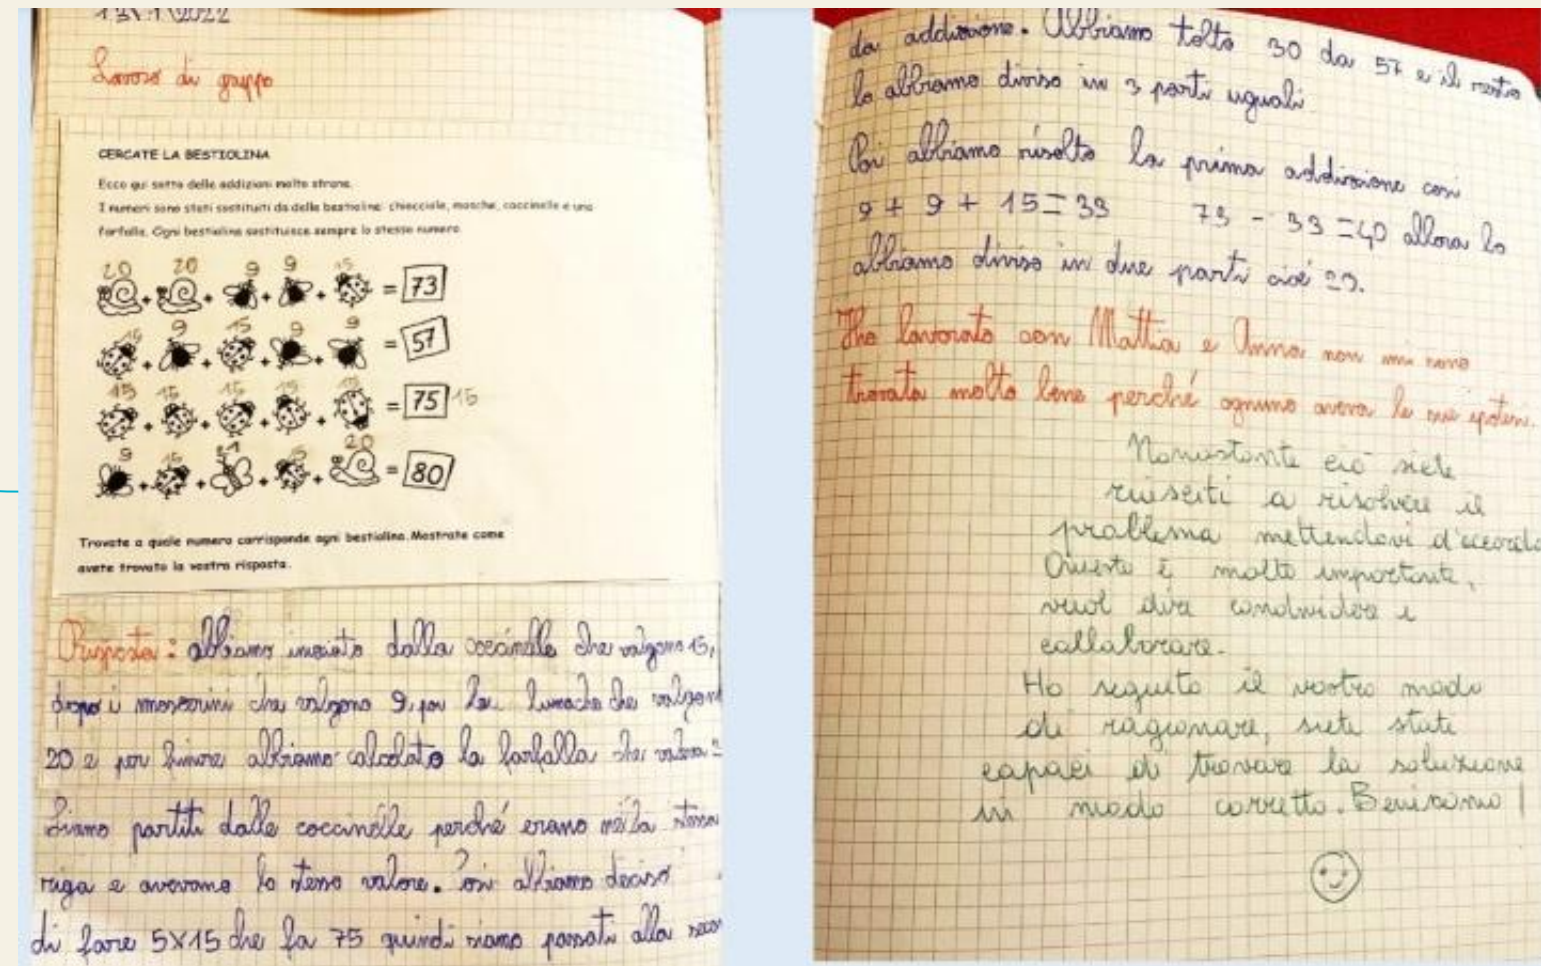 13/1/2022
Lavoro di gruppo
CERCATE LA BESTIOLINA
Ecco qui sotto delle addizioni molto strane.
I numeri sono stati sostituiti da delle bestioline: chiocciole, mosche, coccinelle e una
farfalla. Ogni bestiolina sostituisce sempre lo stesso numero.
20 20 9 9 15
+ + + + = 73
15 9 15 9 9
+ + + + = 57
15 15 15 15 15
+ + + + = 75 15
9 15 21 15 20
+ + + + = 80
Trovate a quale numero corrisponde ogni bestiolina. Mostrate come
avete trovato la vostra risposta.
Risposta: abbiamo iniziato dalla coccinelle che valgono 15,
dopo i moscerini che valgono 9, poi le lumache che valgon
20 e per finire abbiamo calcolato la farfalla che valeva 2
Siamo partiti dalle coccinelle perché erano nella stessa
riga e avevano lo stesso valore. Poi abbiamo deciso
di fare 5x15 che fa 75 quindi siamo passati alla seco
da addizione. Abbiamo tolto 30 da 57 e il resto
lo abbiamo diviso in 3 parti uguali.
Poi abbiamo risolto la prima addizione così
9 + 9 + 15 = 33 73 - 33 = 40 allora lo
abbiamo diviso in due parti cioé 20.
Ho lavorato con Mattia e Anna non mi sono
trovata molto bene perché ognuno aveva le sue ipotesi.
Nonostante ciò siete
riusciti a risolvere il
problema mettendovi d'accordo
Questo è molto importante,
vuol dire condividere e
collaborare.
Ho seguito il vostro modo
di ragionare, siete stati
capaci di trovare la soluzione
in modo corretto. Benissimo!